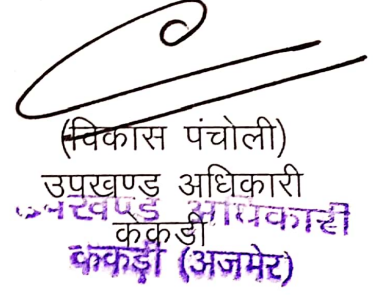 (विकास पंचोली)
उपखण्ड अधिकारी
उपखण्ड अधिकारी
केकडी
केकड़ी (अजमेर)